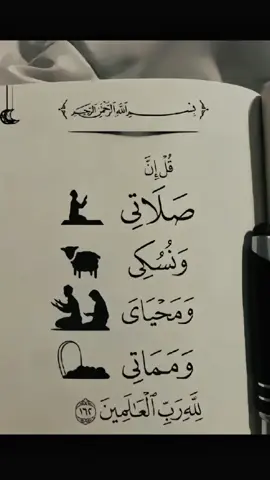 ﴿ بِسْمِ اللَّهِ الرَّحْمَٰنِ الرَّحِيمِ ﴾
قُلْ إِنَّ
صَلَاتِي
وَنُسُكِي
وَمَحْيَايَ
وَمَمَاتِي
لِلَّهِ رَبِّ الْعَالَمِينَ ١٦٢